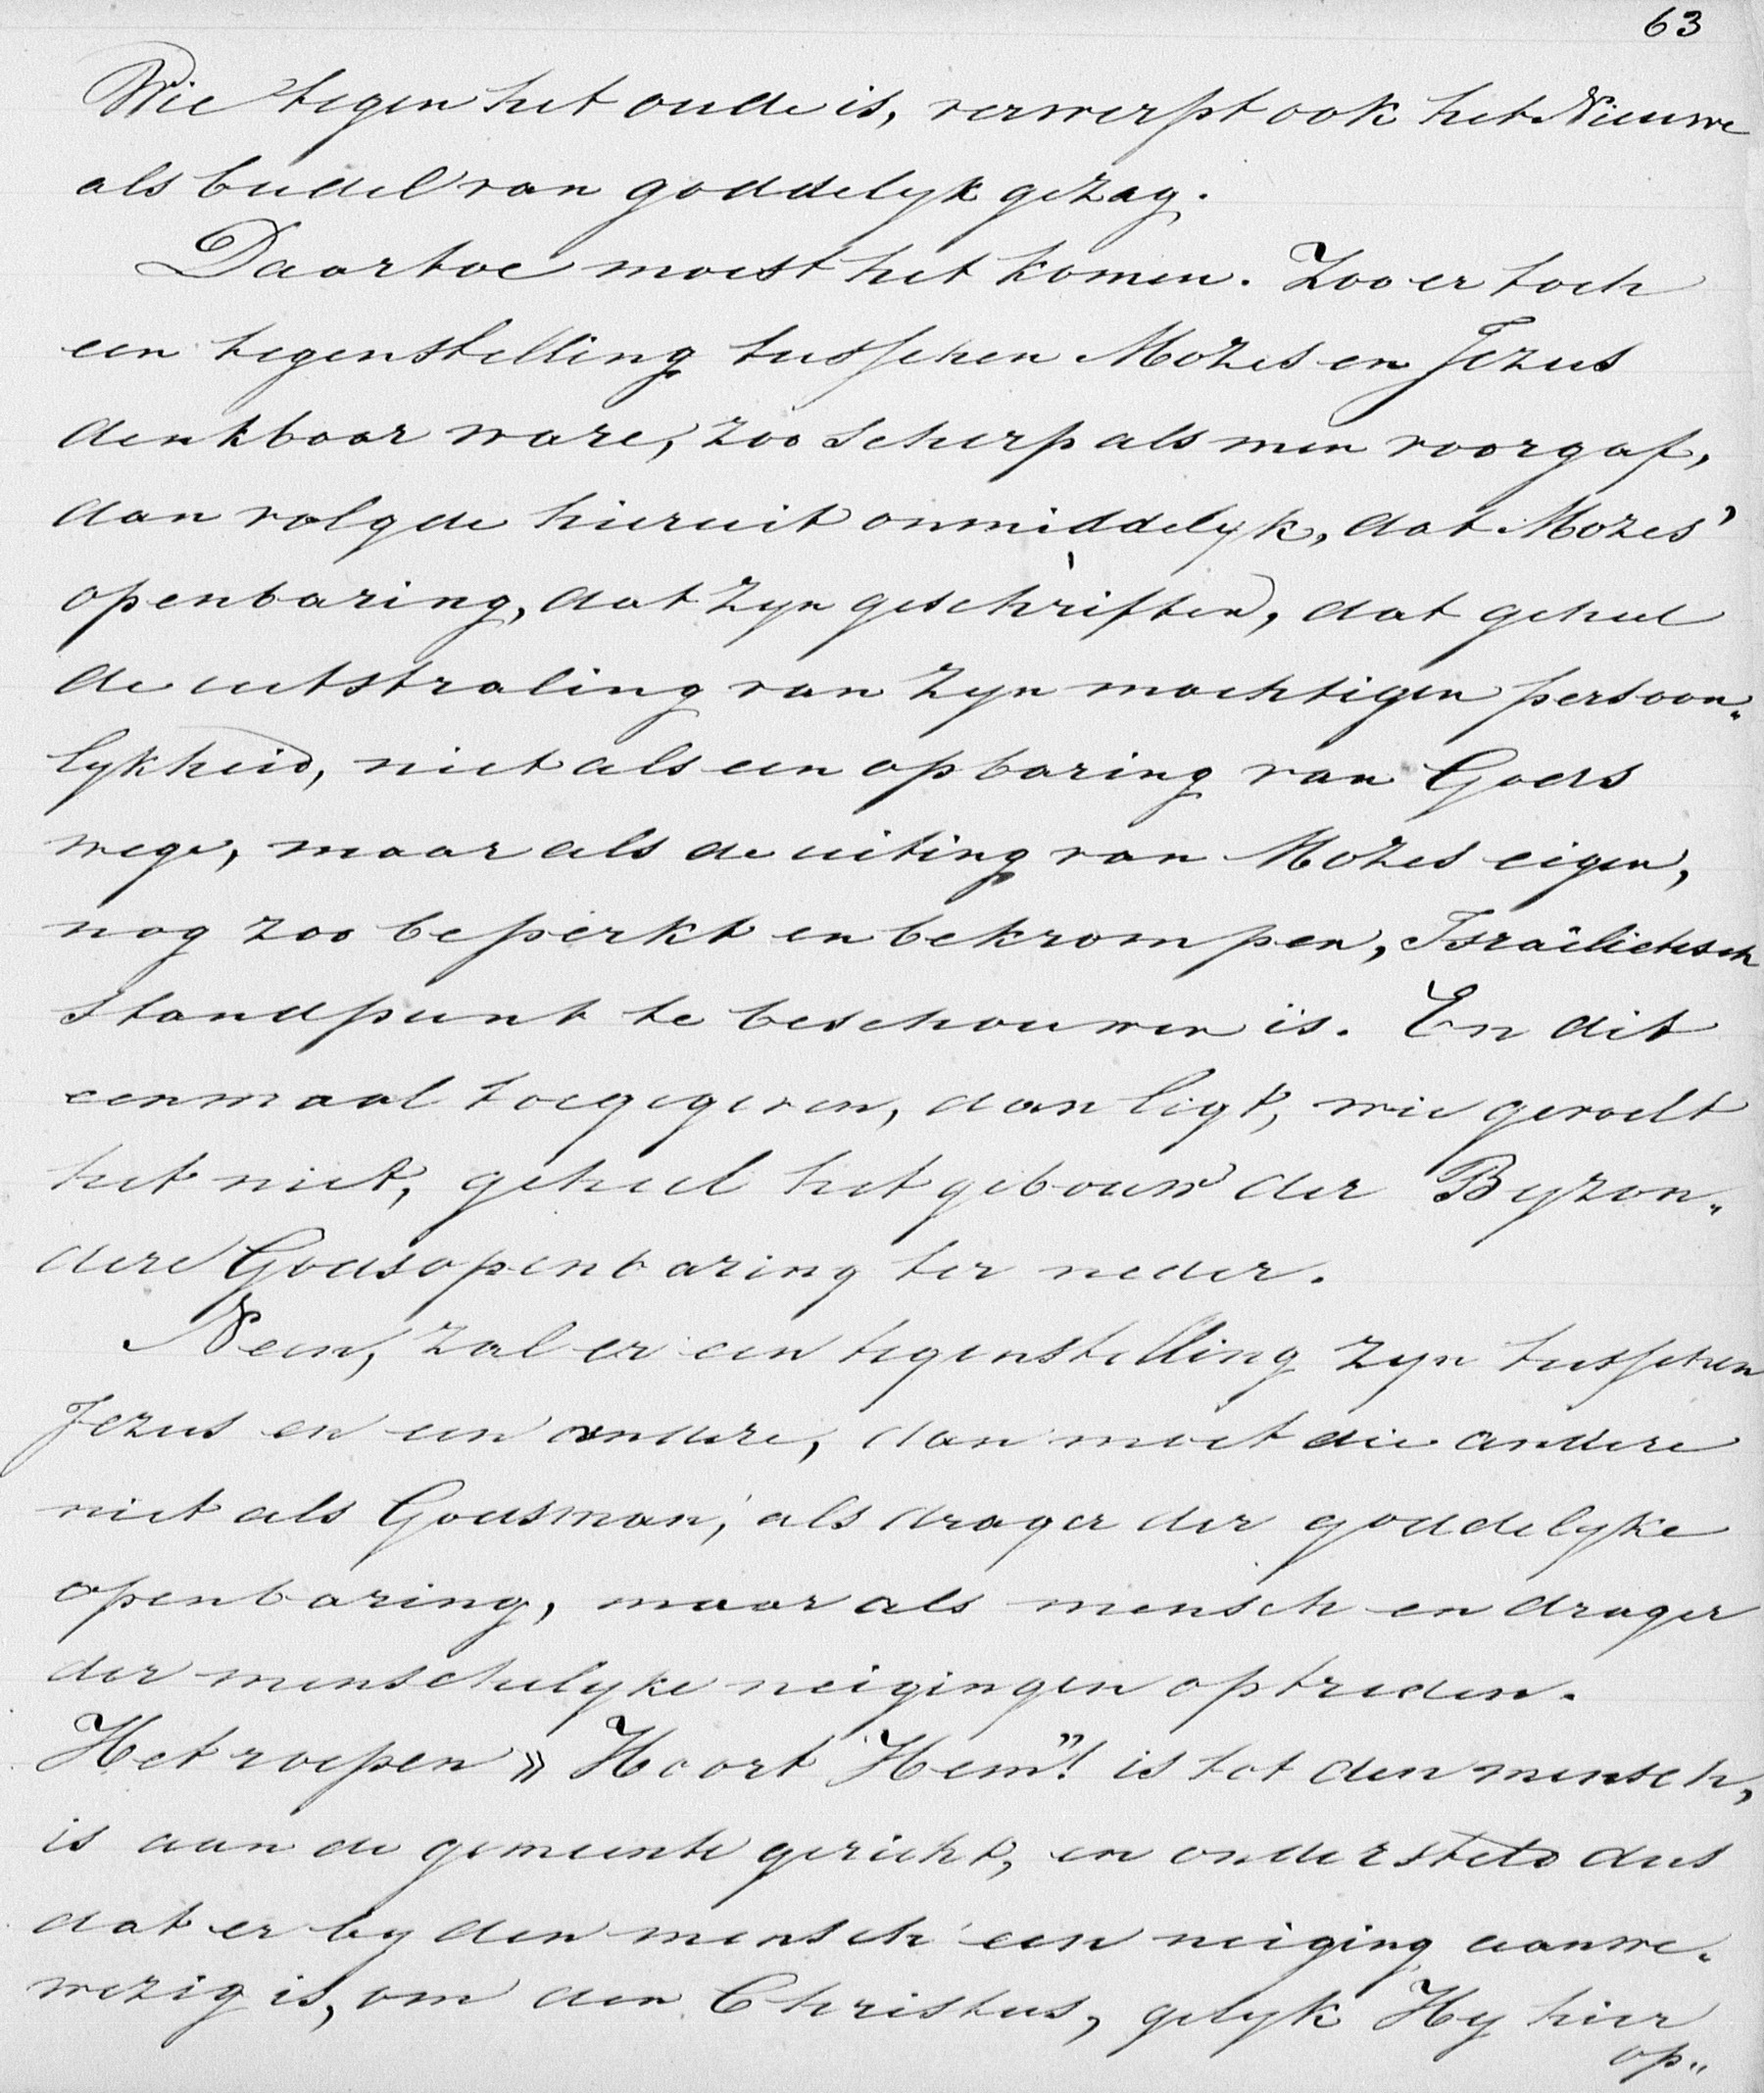 63
Wie tegen het oude is, verwerpt ook het Nieuwe
als bundel van goddelyk gezag.
Daartoe moest het komen. Zoo er toch
een tegenstelling tusschen Mozes en Jezus
denkbaar ware, zoo scherp als men voorgaf,
dan volgde hieruit onmiddelyk, dat Mozes'
openbaring, dat zyn geschriften, dat geheel
de uitstraling van zyn machtigen persoon„
lykheid, niet als een opbaring van Gods
wege, maar als de uiting van Mozes eigen,
nog zoo beperkt en bekrompen, Israëlietisch
standpunt te beschouwen is. En dit
eenmaal toegegeven, dan ligt, wie gevoelt
het niet, geheel het gebouw der Byzon„
dere Godsopenbaring ter neder.
Neen, zal er een tegenstelling zyn tusschen
Jezus en een andere, dan moet die andere
niet als Godsman, als drager der goddelyke
openbaring, maar als mensch en drager
der menschelyke neigingen optreden.
Het roepen » Hoort Hem"! is tot den mensch,
is aan de gemeente gericht, en onderstelt dus
dat er by den mensch een neiging aanwe„
wezig is, om den Christus, gelyk Hy hier
op„